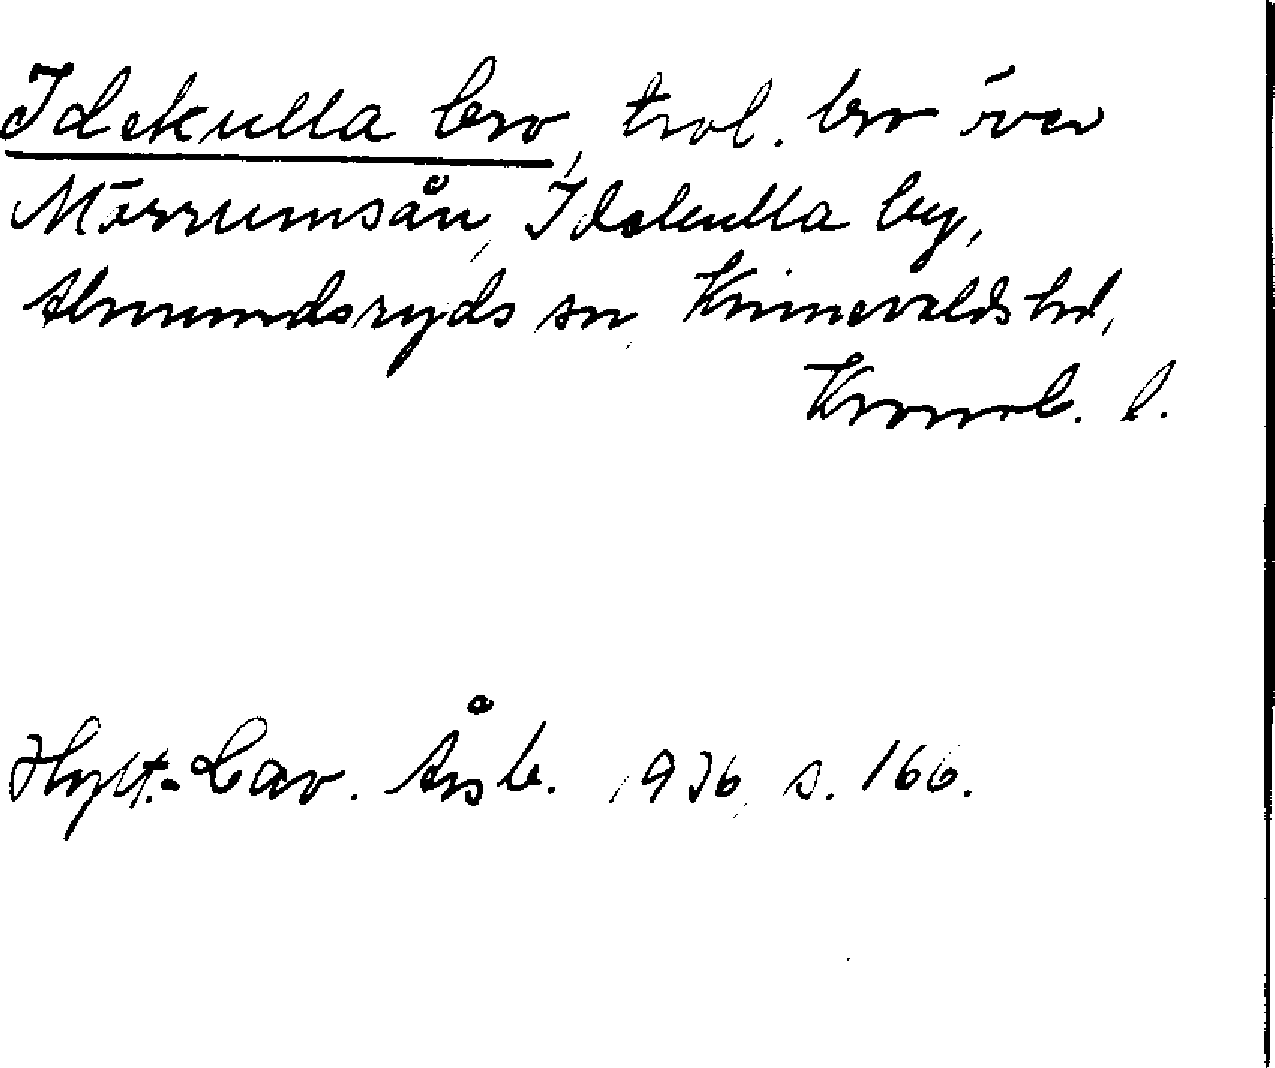 Idekulla bro, trol. bro över
Mörrumsån, Idekulla by,
Almundsryds sn, Kinnevalds hd,
Kronob. l.
Hylt.-Cav. Årsb. 1936, s. 166.